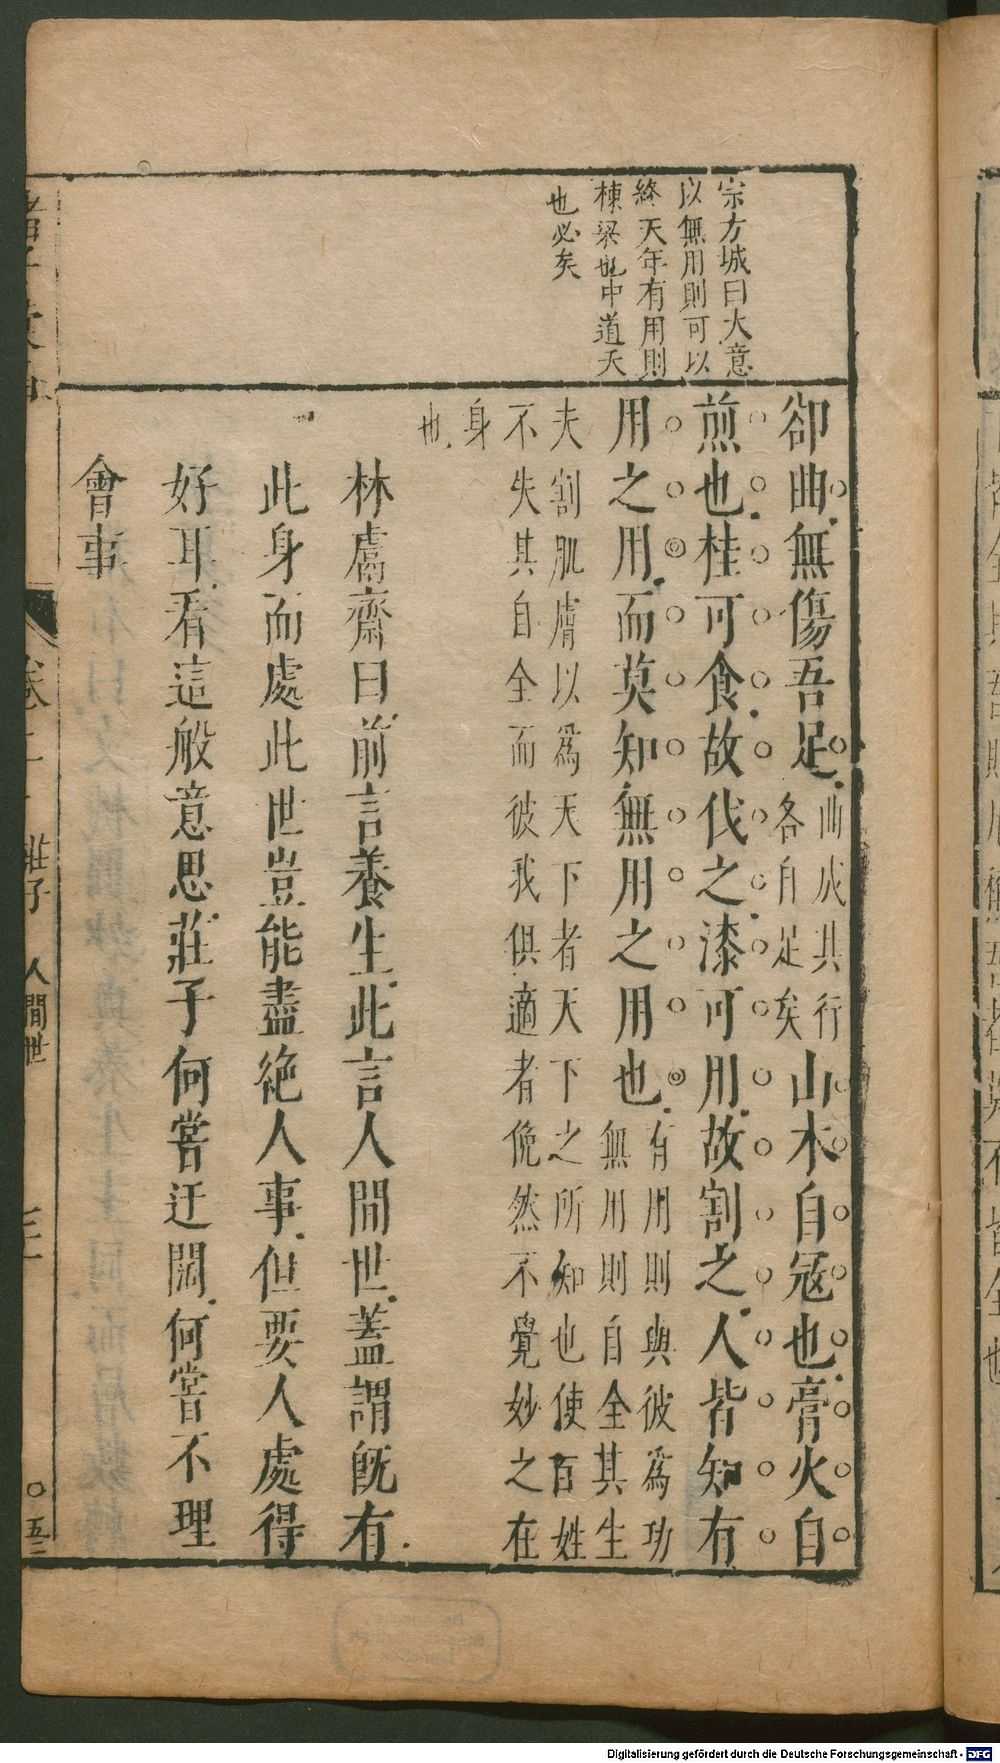 宗方城曰大意
以無用則可以
終天年有用則
棟梁也中道夭
也必矣
卻曲無傷吾足曲成其行各自足矣山木自寇也膏火自
煎也桂可食故伐之漆可用故割之人皆知有
用之用而莫知無用之用也有用則與彼為功無用則自全其生
夫割肌膚以為天下者天下之所知也使百姓
不失其自全而彼我俱適者俛然不覺妙之在
身
也
林鬳齋曰前言養生此言人間世蓋謂旣有
此身而處此世豈能盡絶人事但要人處得
好耳看這般意思莊子何嘗迂闊何嘗不理
會事
莊子 人間世
Digitalisierung gefördert durch die Deutsche Forschungsgemeinschaft - DFG